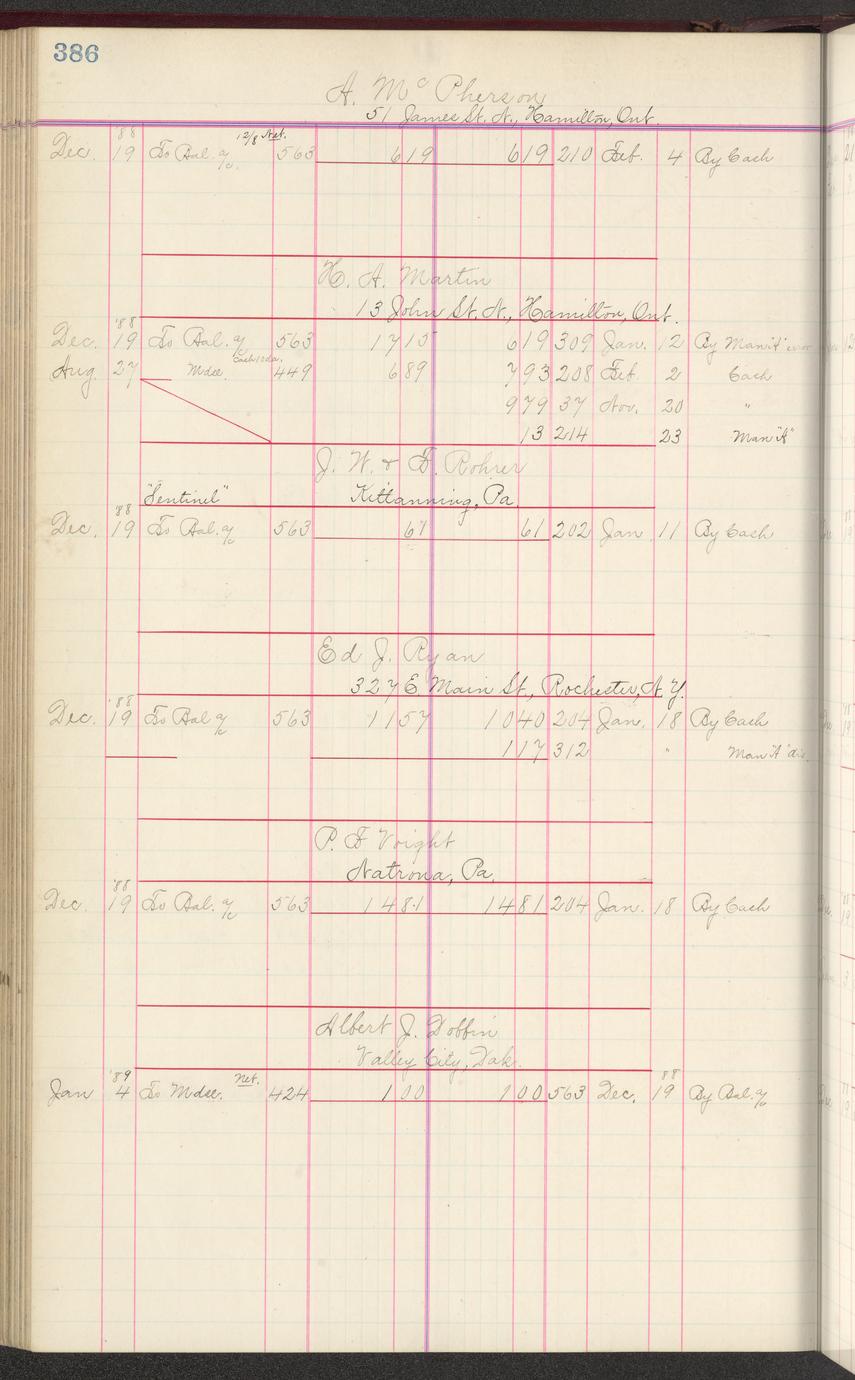 386
A. McPherson
51 James St. N., Hamilton, Ont.
'88 12/8 Net.
Dec. 19 To Bal. a/c 563 619 619 210 Feb. 4 By Cash
H. A. Martin
13 John St. N., Hamilton, Ont.
'88
Dec. 19 To Bal. a/c 563 1715 619 309 Jan. 12 By Man "A" error
Cash 10 da.
Aug. 27 Mdse. 449 689 793 208 Feb. 2 Cash
979 37 Nov. 20 "
13 214 23 Man "A"
J. W. & F. Rohrer
"Sentinel" Kittanning, Pa.
'88
Dec. 19 To Bal. a/c 563 61 61 202 Jan. 11 By Cash
Ed J. Ryan
327 E. Main St., Rochester, N. Y.
'88
Dec. 19 To Bal a/c 563 1157 1040 204 Jan. 18 By Cash
117 312 " Man "A" dis.
P. F Voight
Natrona, Pa.
'88
Dec. 19 To Bal. a/c 563 1481 1481 204 Jan. 18 By Cash
Albert J. Dobbin
Valley City, Dak.
'89 Net. 88
Jan 4 To Mdse. 424 100 100 563 Dec. 19 By Bal. a/c